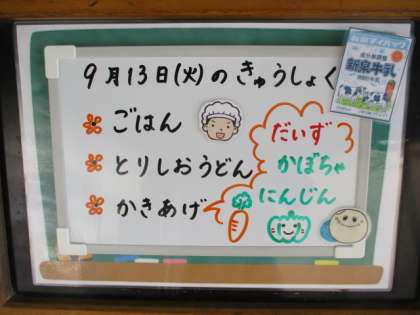 9月13日(火)のきゅうしょく
ごはん
とりしおうどん
かきあげ
だいず
かぼちゃ
にんじん
成分無調整
新泉牛乳